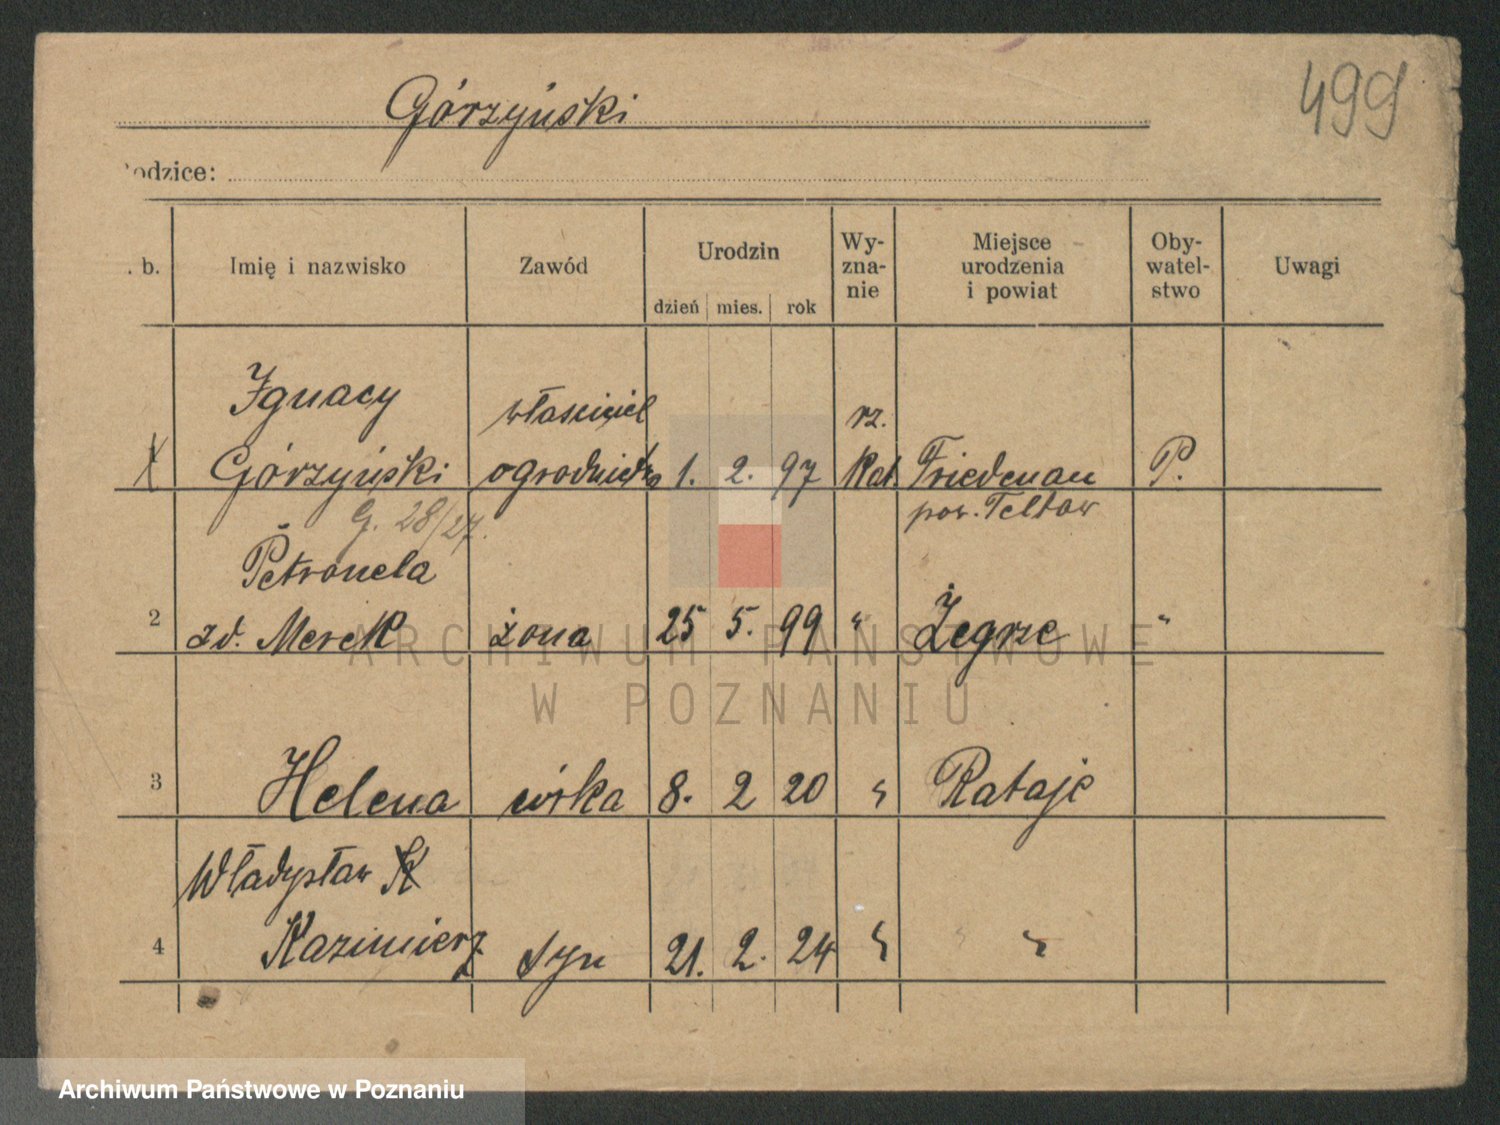 499
Górzyński
odzice:
. b. Imię i nazwisko Zawód Urodzin dzień mies. rok Wy-zna-nie Miejsce urodzenia i powiat Oby-watel-stwo Uwagi
Ignacy właściciel rz.
Górzyński ogrodnictwa 1. 2. 97 Kat. Friedenau P.
G. 28/27. pow. Teltow
Petronela
2 zd. Merek żona 25 5. 99 " Żegrze "
ARCHIWUM PAŃSTWOWE
W POZNANIU
3 Helena córka 8. 2 20 " Rataje
Władysław K
4 Kazimierz syn 21. 2. 24 " "
Archiwum Państwowe w Poznaniu